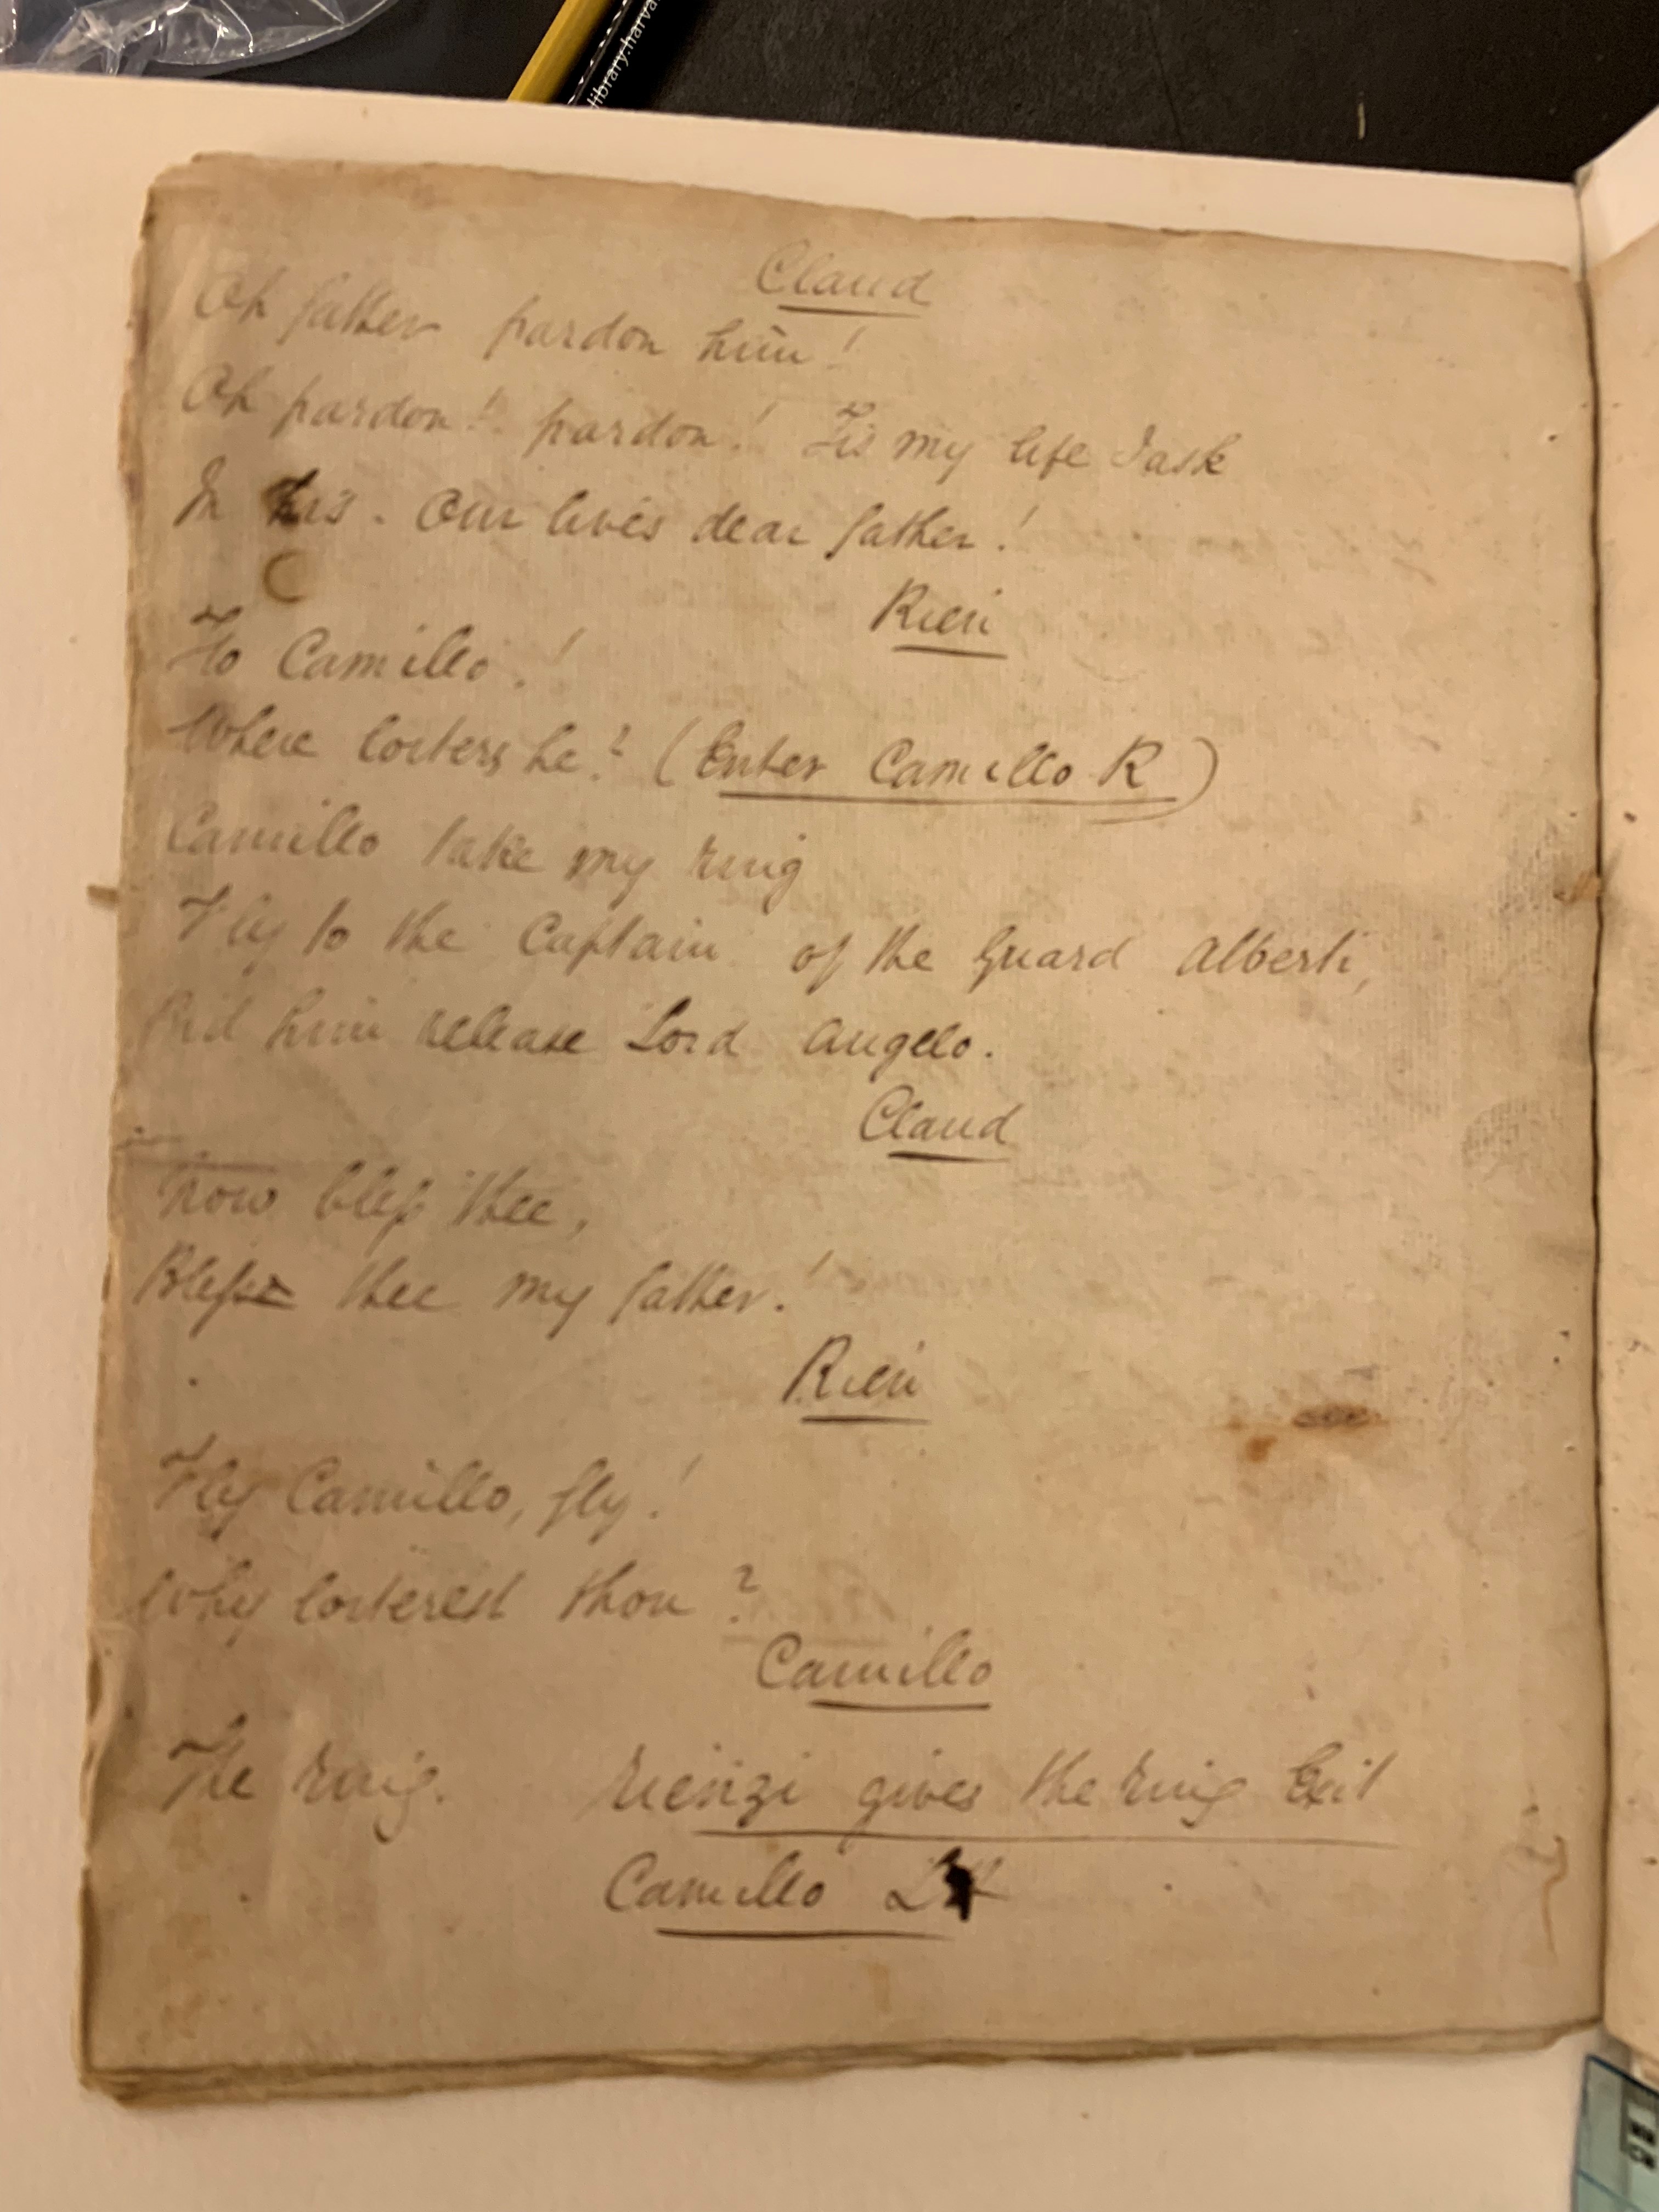 library.harva
Claud
Oh father pardon him!
Oh pardon! pardon! Tis my life I ask
In his. Our lives dear father!
Rien
Ho Camillo!
Where loiters he? (Enter Camillo R)
Camillo take my ring
Fly to the Captain of the Guard Alberti,
Bid him release Lord Angelo.
Claud
Now bless thee,
Bless thee my father!
Rien
Fly Camillo, fly!
Why loiterest thou?
Camillo
The ring. Rienzi gives the ring Exit
Camillo L